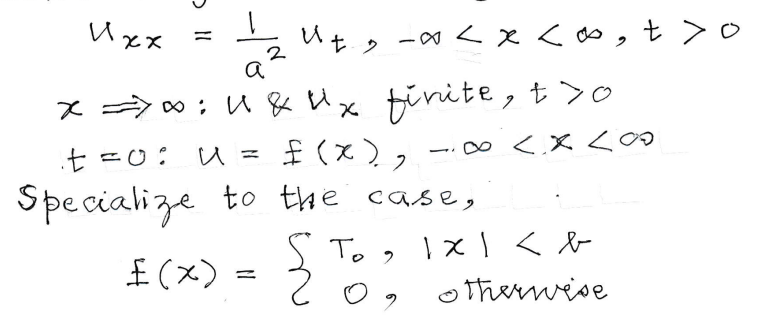 u_xx = 1/a² u_t, -∞ < x < ∞, t > 0
x ⟹ ∞ : u & u_x finite, t > 0
t = 0 : u = f(x), -∞ < x < ∞
Specialize to the case,
f(x) = { T₀, |x| < b
0, otherwise